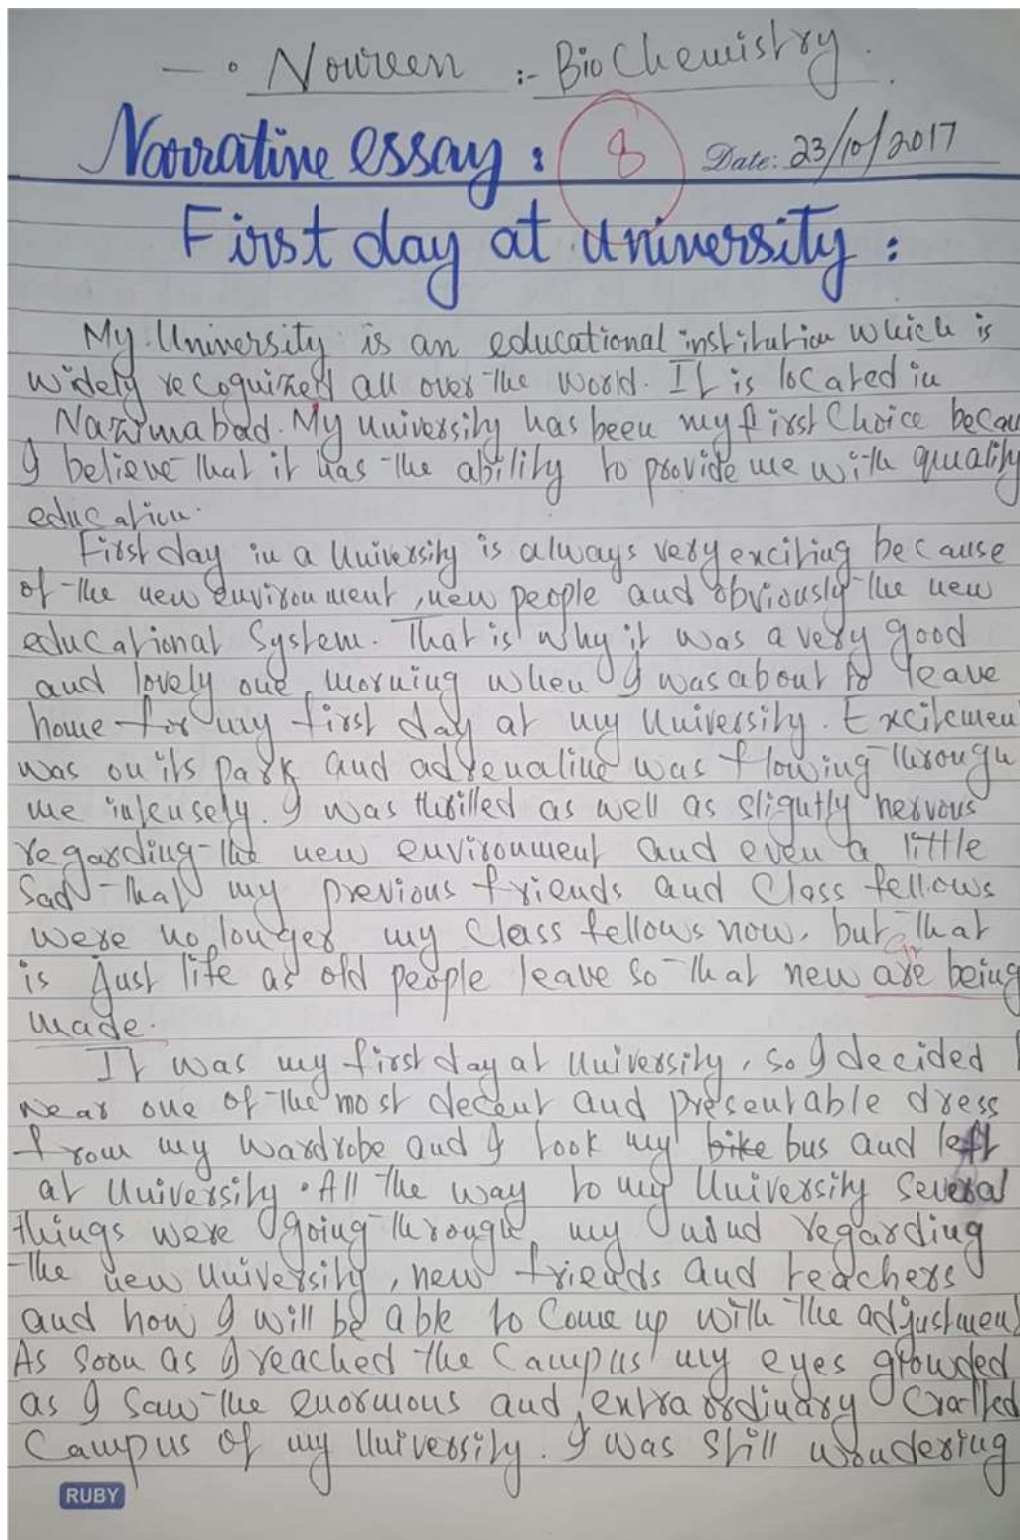 Noureen :- BioChemistry.
Narrative essay : 8 Date: 23/10/2017
First day at University :
My University is an educational institution which is
widely recognized all over the world. It is located in
Nazimabad. My University has been my first Choice becau
I believe that it has the ability to provide me with quality
education.
First day in a University is always very exciting because
of the new environment, new people and obviously the new
educational System. That is why it was a very good
and lovely one morning when I was about to leave
home for my first day at my University. Excitemen
was on its park and adrenaline was flowing through
me intensely. I was thrilled as well as slightly nervous
regarding the new environment and even a little
Sad that my previous friends and Class fellows
were no longer my Class fellows now, but that
is just life as old people leave so that new are being
made.
It was my first day at University, so I decided
wear one of the most decent and presentable dress
from my wardrobe and I took my bike bus and left
at University. All the way to my University Several
things were going through my mind regarding
the new University, new friends and teachers
and how I will be able to Come up with the adjustmen
As Soon as I reached the Campus my eyes
as I Saw the enormous and extraordinary Crafted
Campus of my University. I was Still wondering
RUBY